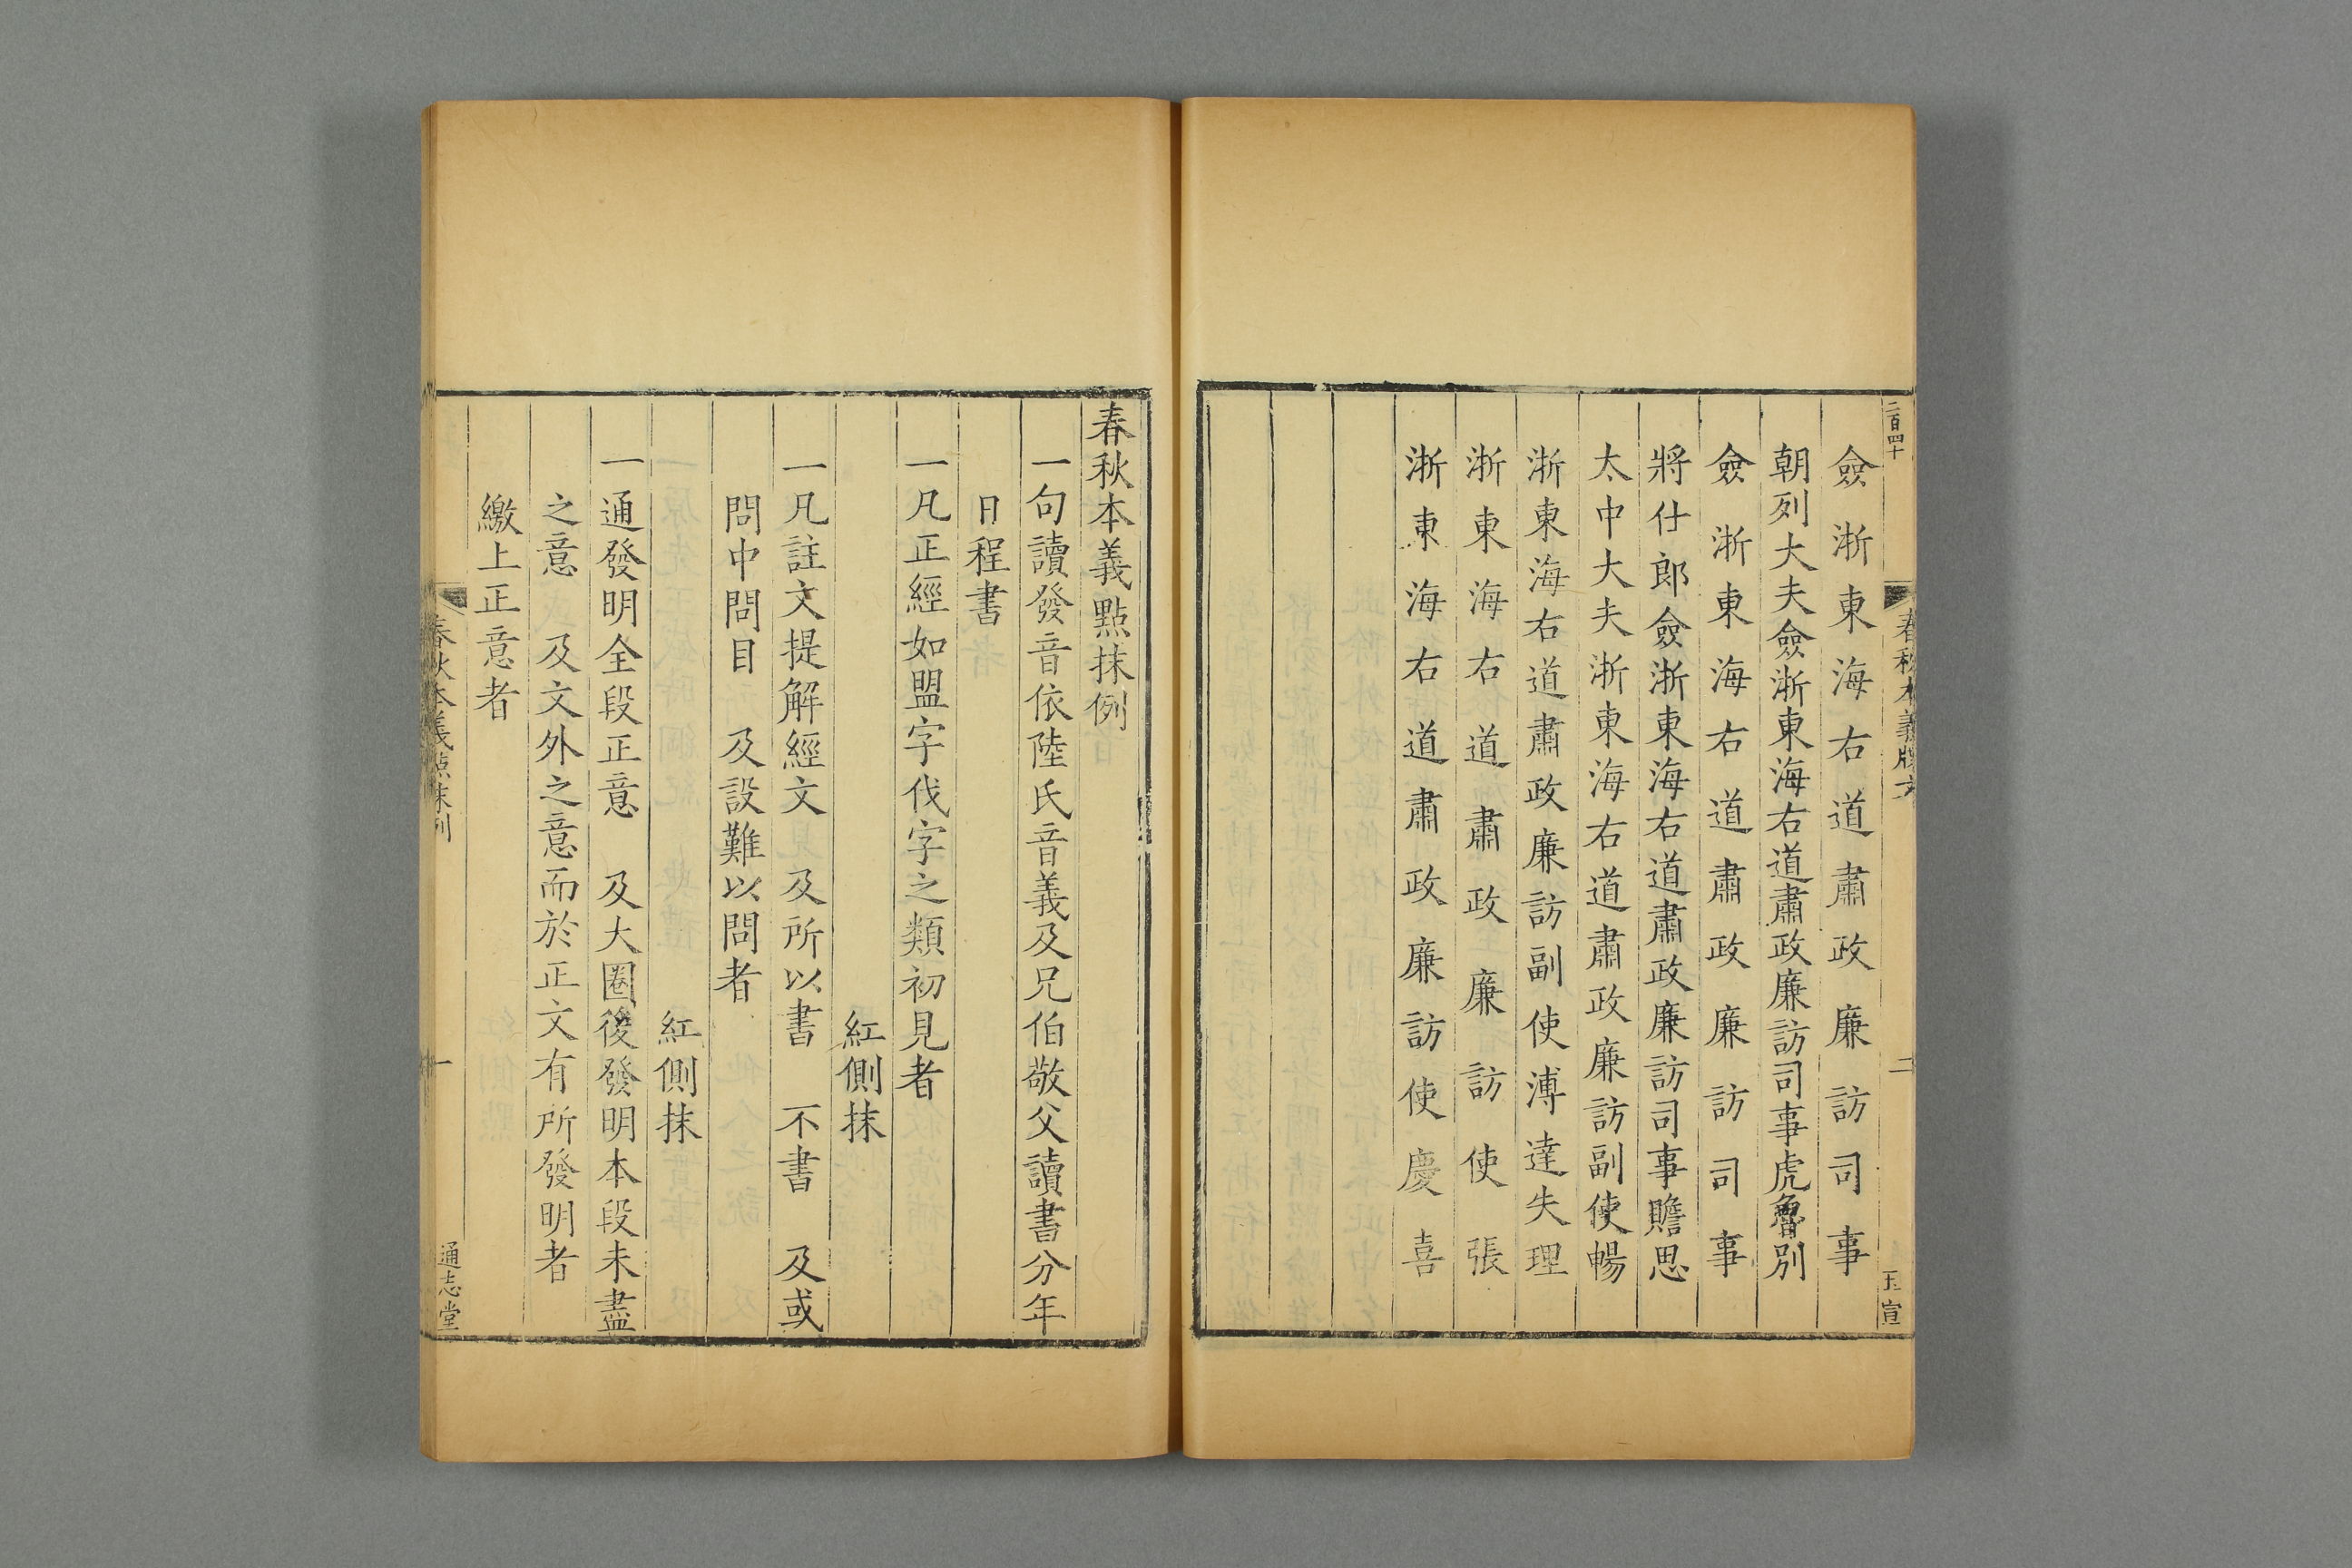 二百四十
春秋本義牒文
二
玉宣
僉浙東海右道肅政廉訪司事
朝列大夫僉浙東海右道肅政廉訪司事虎魯別
僉浙東海右道肅政廉訪司事
將仕郎僉浙東海右道肅政廉訪司事贍思
太中大夫浙東海右道肅政廉訪副使暢
浙東海右道肅政廉訪副使溥達失理
浙東海右道肅政廉訪使張
浙東海右道肅政廉訪使慶喜
春秋本義點抹例
一句讀發音依陸氏音義及兄伯敬父讀書分年
日程書
一凡正經如盟字伐字之類初見者
紅側抹
一凡註文提解經文 及所以書 不書 及或
問中問目 及設難以問者
紅側抹
一通發明全段正意 及大圈後發明本段未盡
之意 及文外之意而於正文有所發明者
繳上正意者
春秋本義點抹例
一
通志堂